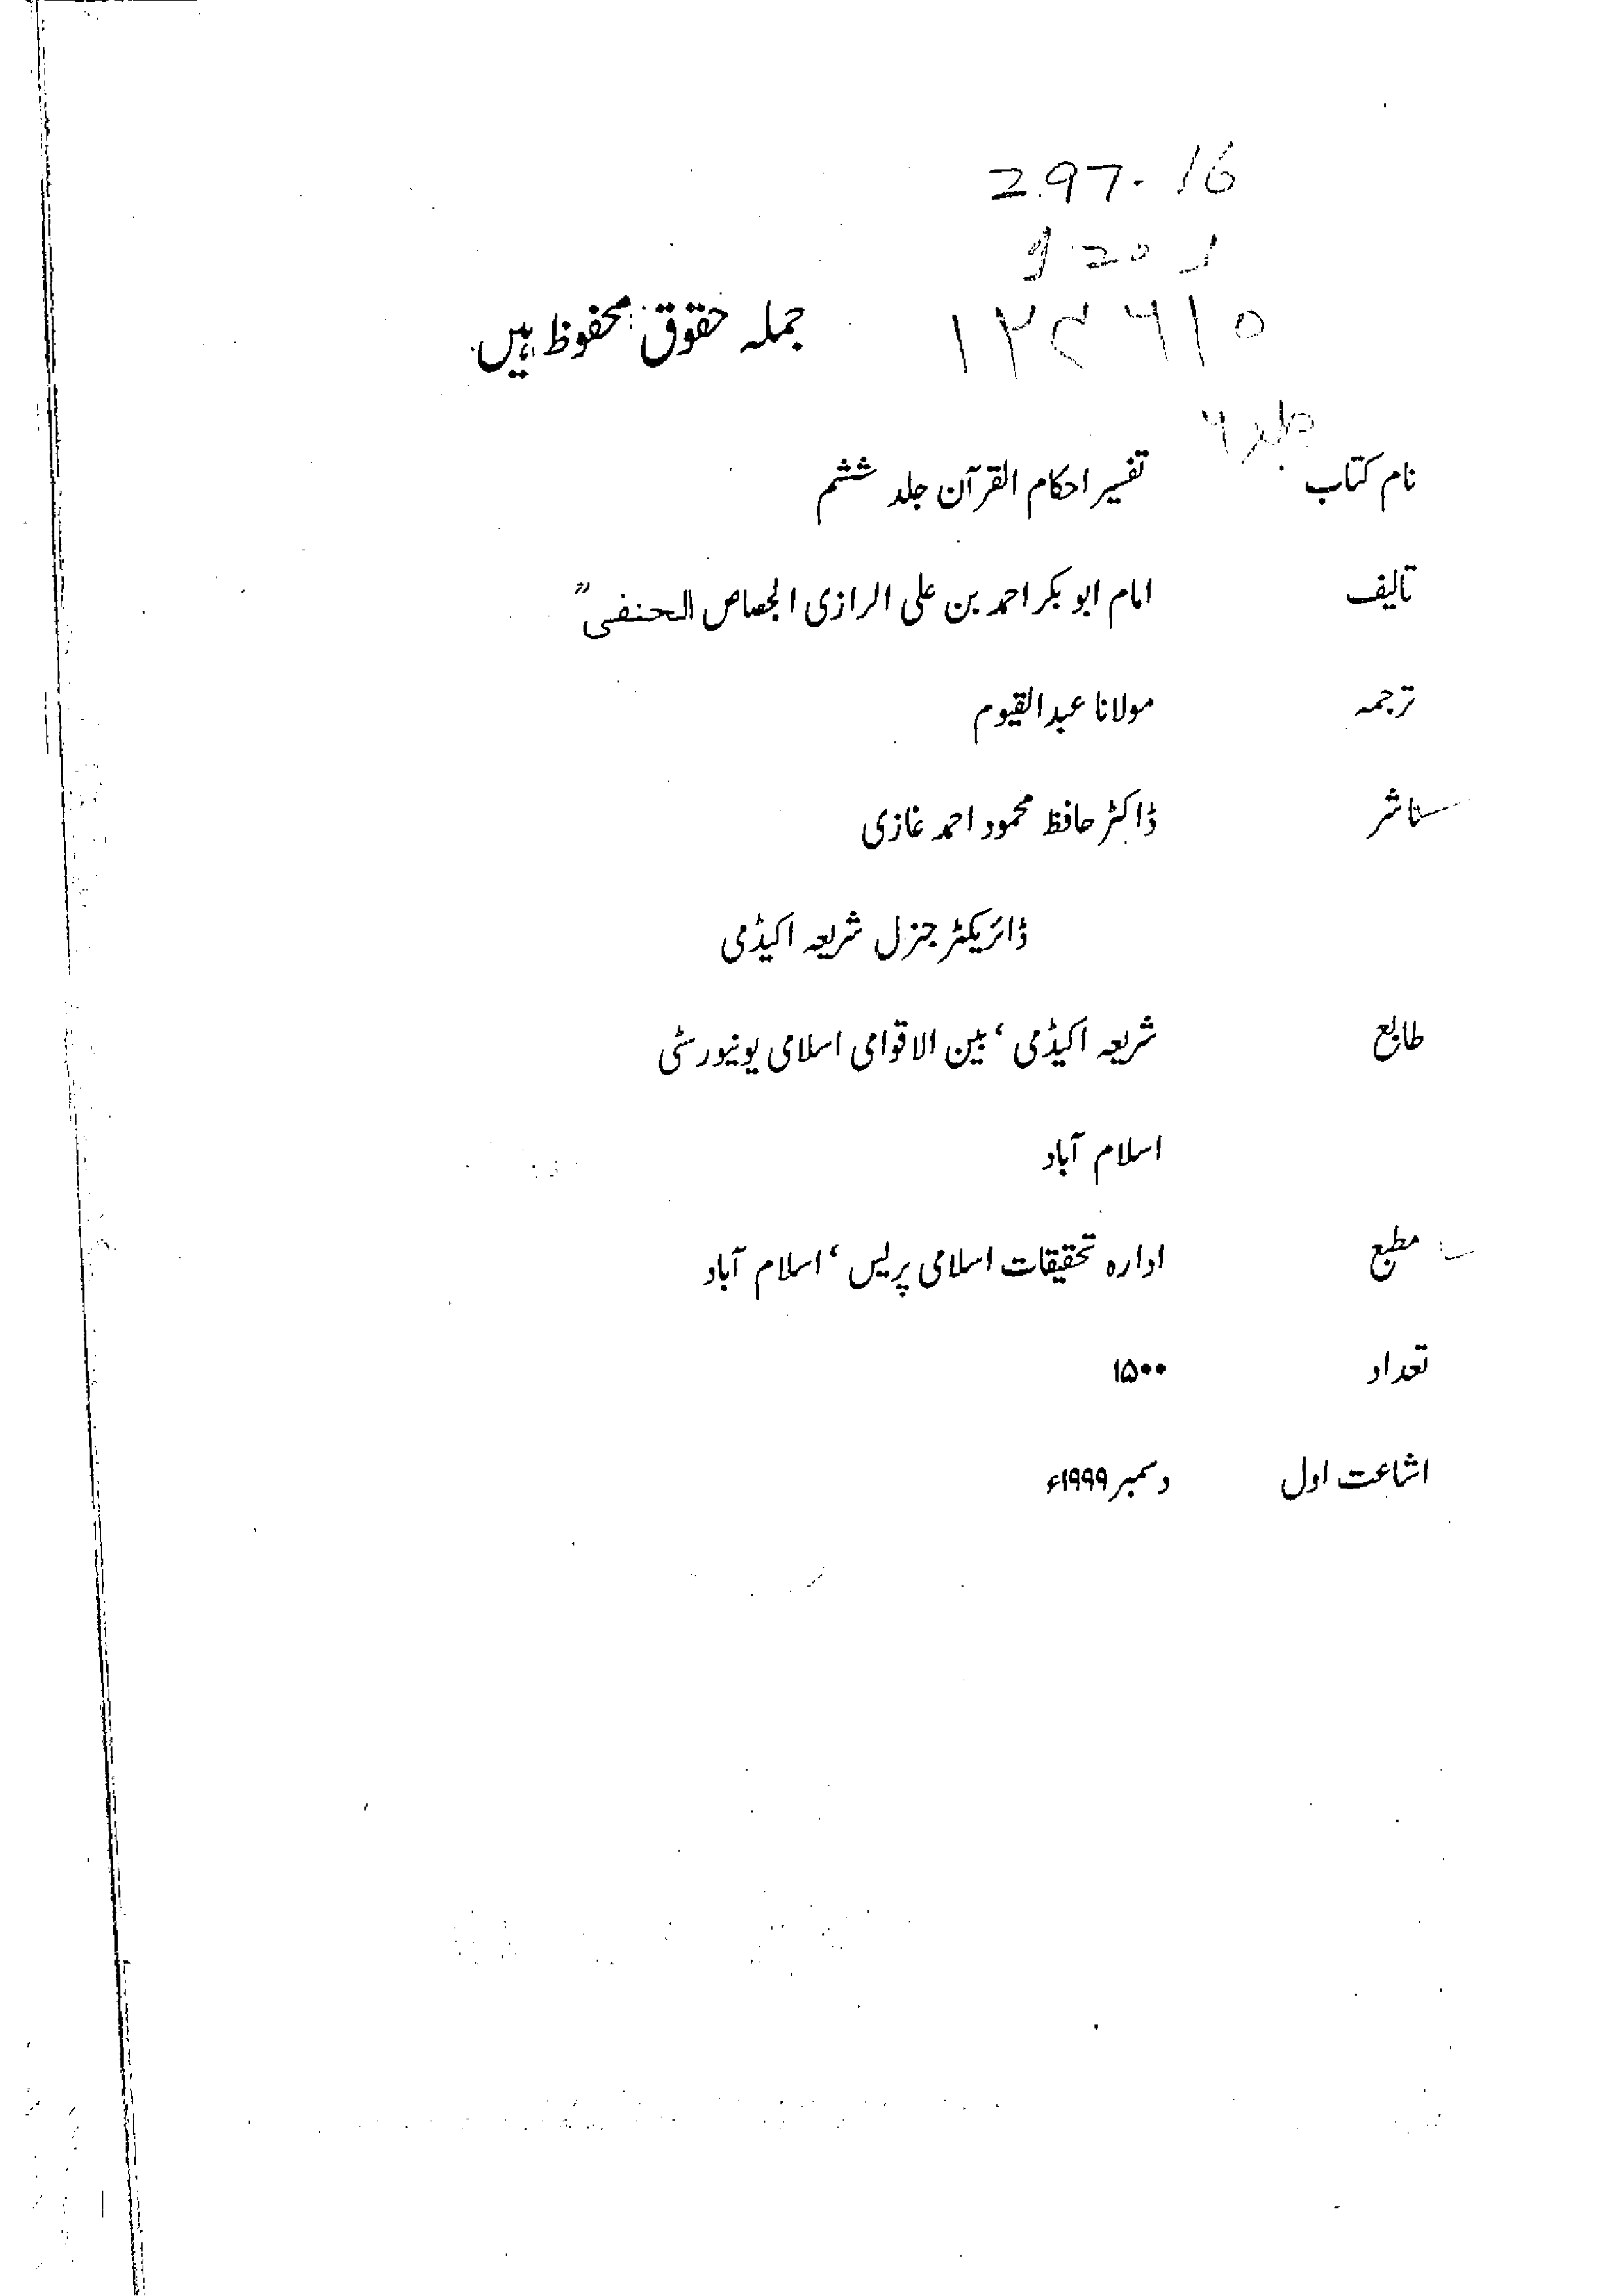 297.16
جملہ حقوق محفوظ ہیں
جلد ۶
نام کتاب تفسیر احکام القرآن جلد ششم
تالیف امام ابو بکر احمد بن علی الرازی الجصاص الحنفیؒ
ترجمہ مولانا عبدالقیوم
ناشر ڈاکٹر حافظ محمود احمد غازی
ڈائریکٹر جنرل شریعہ اکیڈمی
طابع شریعہ اکیڈمی، بین الاقوامی اسلامی یونیورسٹی
اسلام آباد
مطبع ادارہ تحقیقات اسلامی پریس، اسلام آباد
تعداد ۱۵۰۰
اشاعت اول دسمبر ۱۹۹۹ء